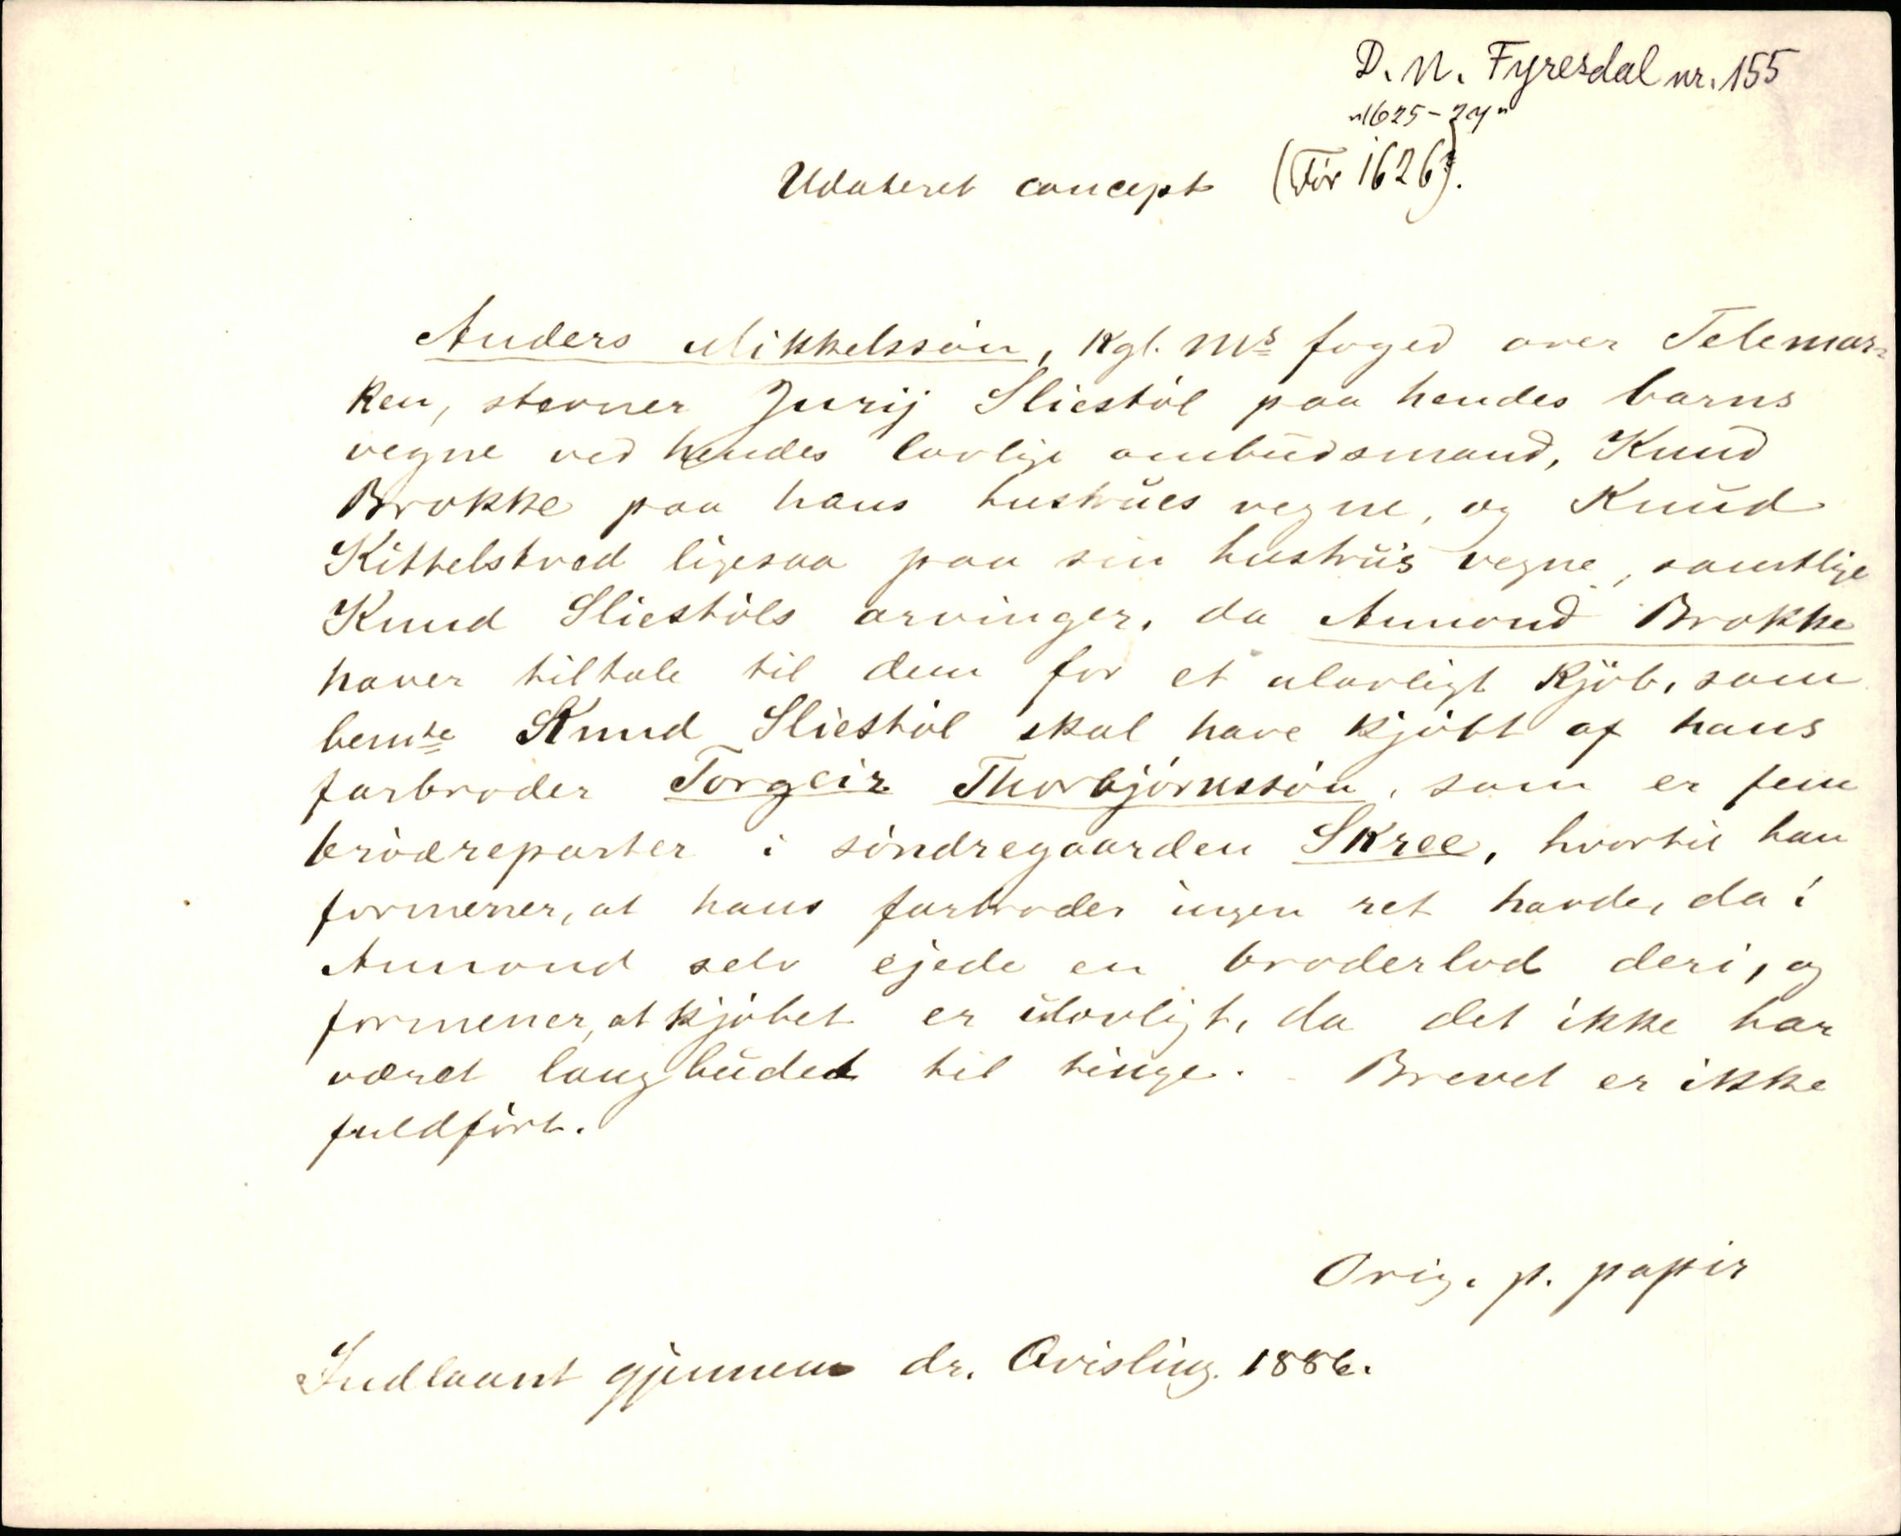 D. N. Fyresdal nr. 155
"1625-27"
Udateret concept (Før 1626?).
Anders Mikkelssøn, Kgl. Ms foged over Telemar=
ken, stevner Jurij Sliestøl paa hendes barns
vegne ved hendes lovlige ombudsmand, Knud
Brokke paa hans hustrues vegne, og Knud
Kittelstved ligesaa paa sin hustrus vegne, samtlige
Knud Sliestøls arvinger, da Aumond Brokke
haver tiltale til dem for et ulovligt Kjøb, som
bemte Knud Sliestøl skal have kjøbt af hans
farbroder Torgeir Thorbjørnssøn, som er fem
brødreparter i søndregaarden Skree, hvortil han
formener, at hans farbroder ingen ret havde, da
Aumond selv ejede en broderlod deri, og
formener, at kjøbet er ulovligt, da det ikke har
været laugbudet til tinge. - Brevet er ikke
fuldført.
Orig. p. papir
Indlaant gjennem dr. Qvisling. 1886.